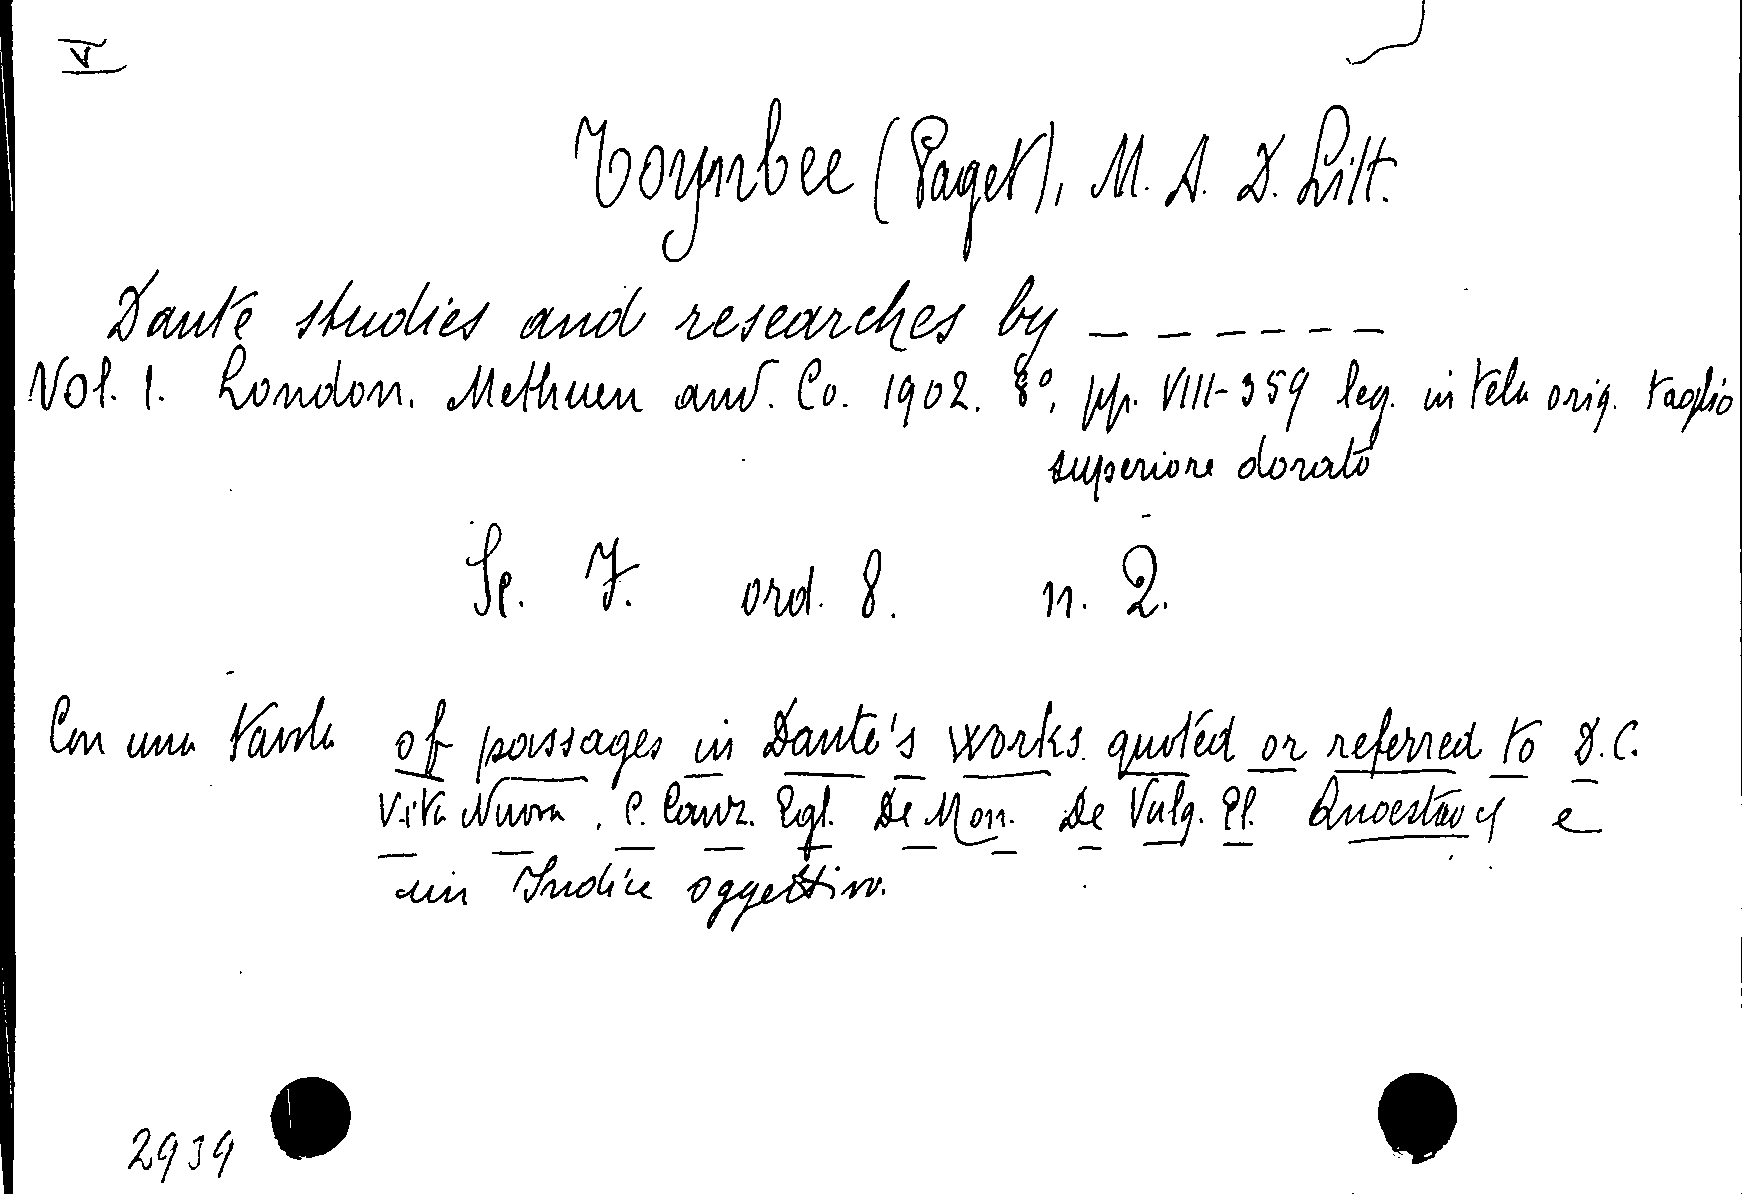 V
Toynbee (Paget), M. A. D. Litt.
Dante studies and researches by _ _ _ _ _ _
Vol. 1. London. Methuen and. Co. 1902. 8°. pp. VIII-359 leg. in tela orig. taglio
superiore dorato
Sc. 7. ord. 8. n. 2.
Con una tavola of passages in Dante's works quoted or referred to D.C.
Vita Nuova. C. Canz. Egl. De Mon. De Vulg. El. e
un Indice oggettivo.
2939